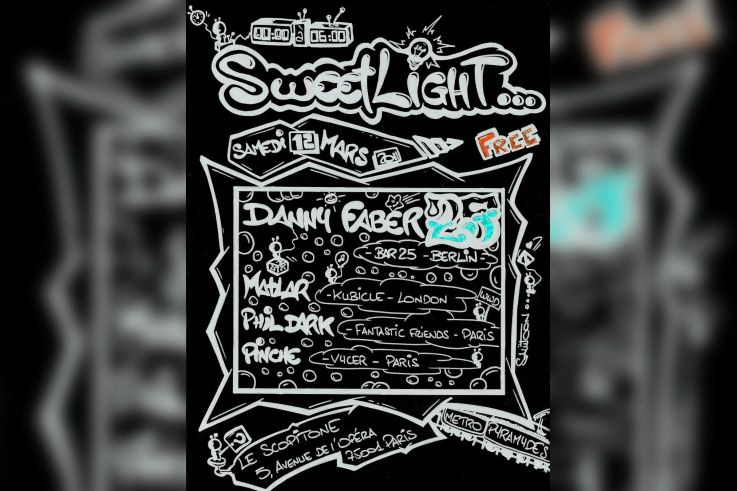 00:00 à 06:00
SWEETLIGHT...
SAMEDI 12 MARS 2011
FREE
DANNY FABER
- BAR 25 - BERLIN -
MATLAR
- KUBICLE - LONDON
PHIL DARK
- FANTASTIC FRIENDS - PARIS
PINCHE
- VYLER - PARIS
LE SCOPITONE
5, AVENUE DE L'OPÉRA
75001 PARIS
METRO PYRAMYDES